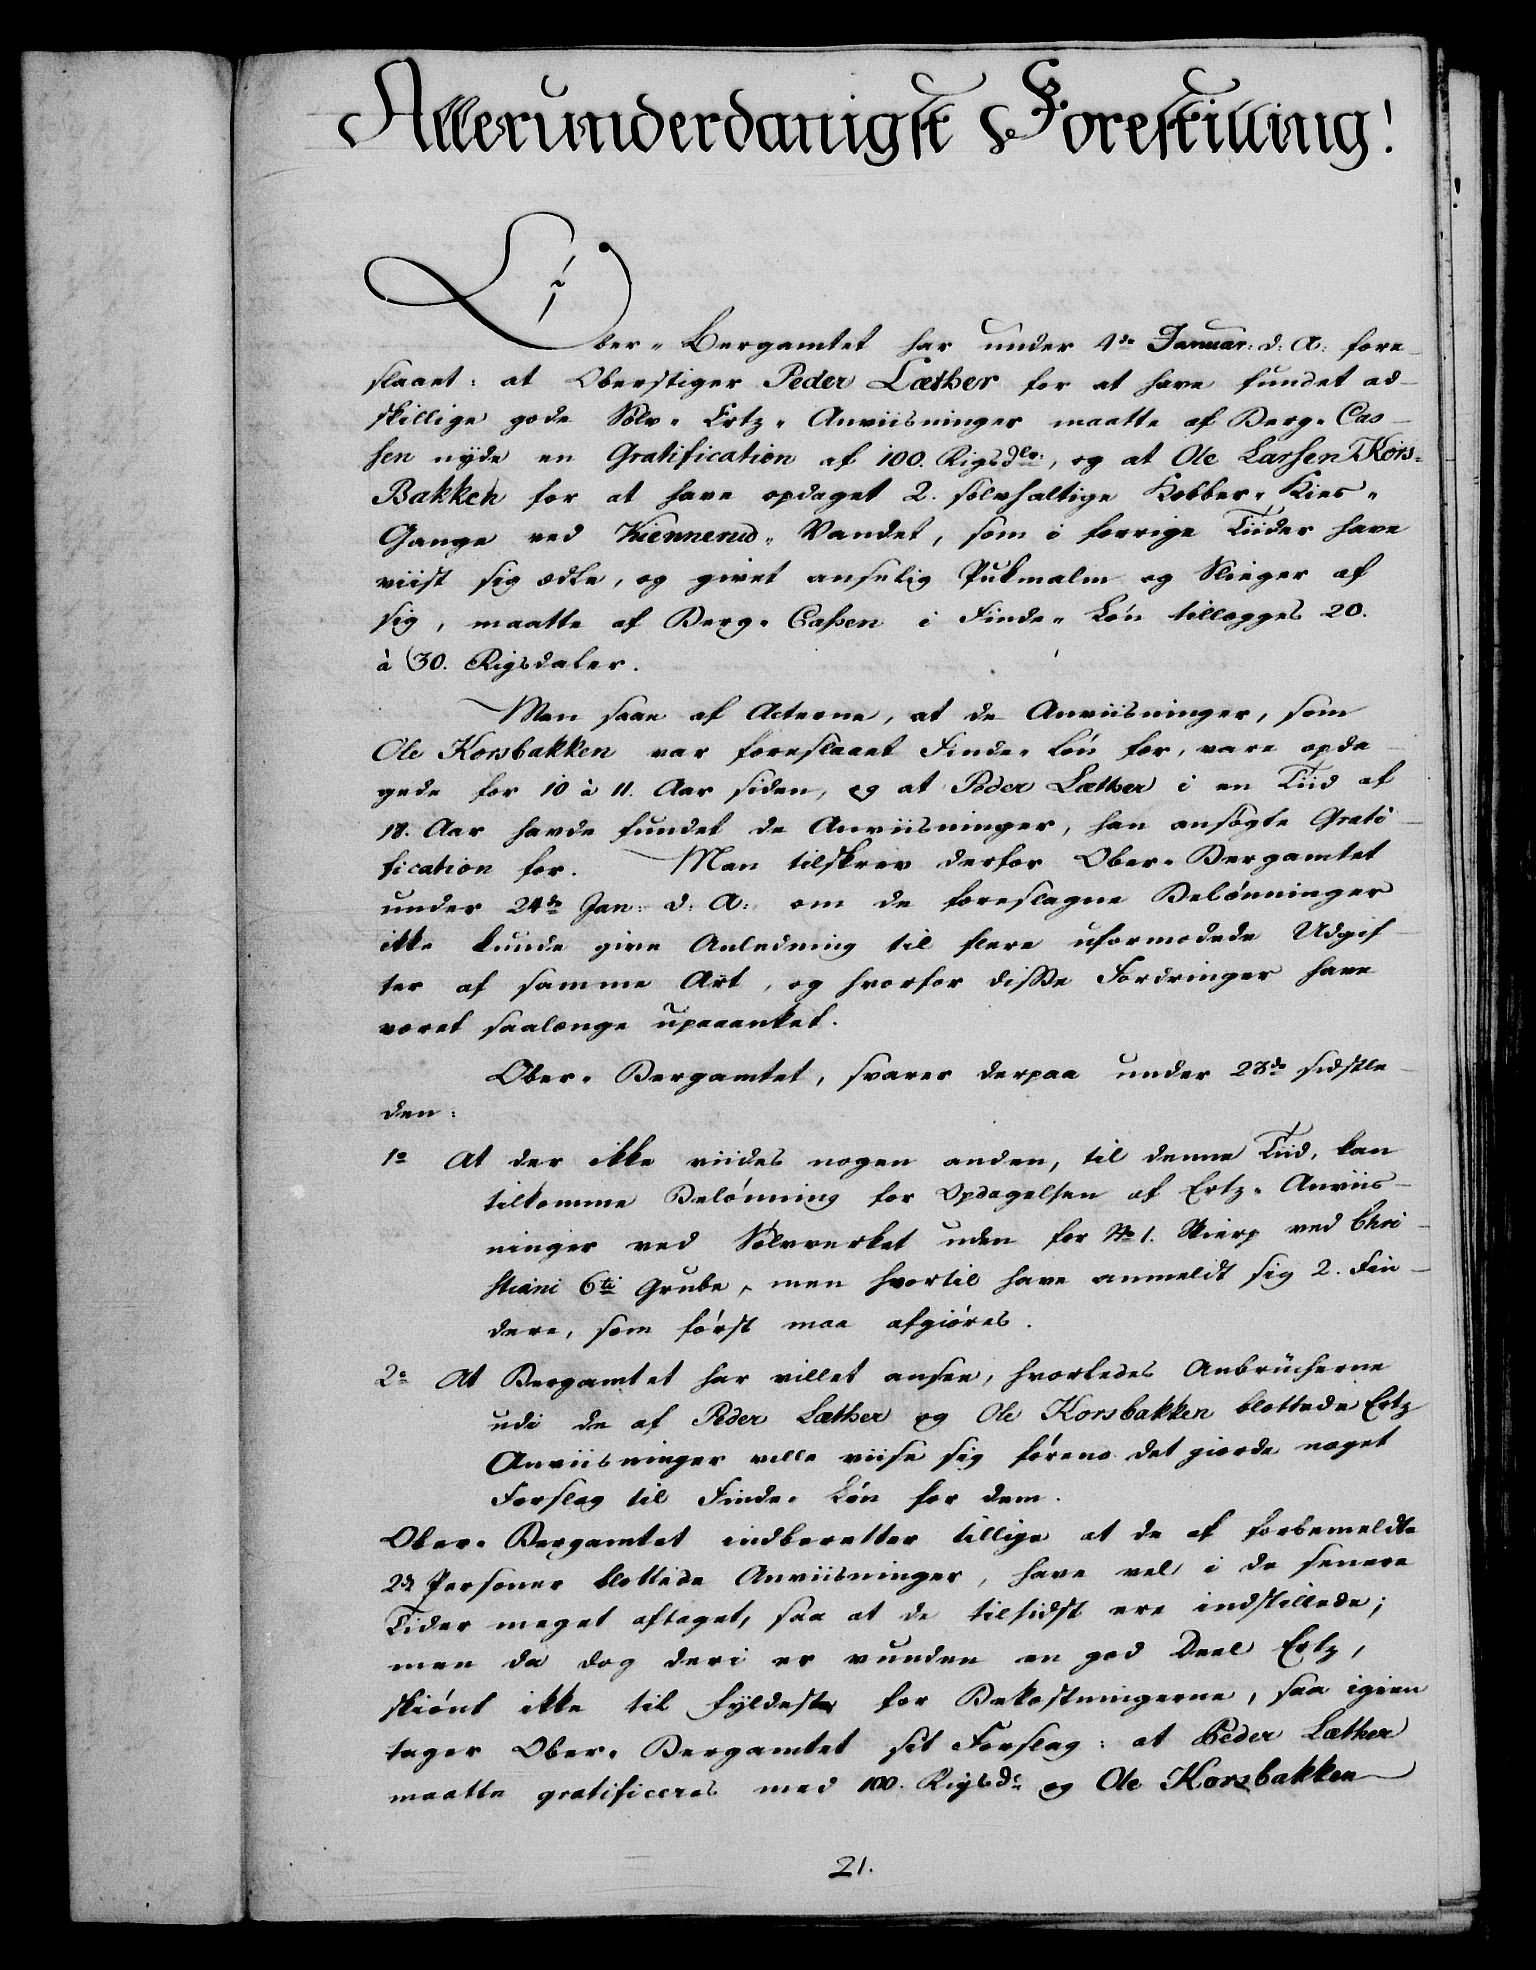 Allerunderdanigst Forestilling!
Ober- Bergamtet har under 4de Januar: d: A: fore-
slaaet: at Oberstiger Peder Læther for at have fundet ad-
skillige gode Sølv- Ertz- Anviisninger maatte af Berg- Cas-
sen nyde en Gratification af 100. Rigsdlr., og at Ole Larsen Kors-
Bakken for at have opdaget 2. sølvhaltige Kobber- Kies-
Gange ved Kiennerud- Vandet, som i forrige Tiider have
viist sig ædle, og givet anselig Pukmalm og Slieger af
sig, maatte af Berg- Cassen i Finde- Løn tillægges 20.
à 30. Rigsdaler.
Man saae af Acterne, at de Anviisninger, som
Ole Korsbakken var foreslaaet Finde- Løn for, vare opda-
gede for 10 à 11. Aar siden, og at Peder Læther i en Tiid af
18. Aar havde fundet de Anviisninger, han ansøgte Grati-
fication for. Man tilskrev derfor Ober- Bergamtet
under 24de Jan: d: A: om de foreslagne Belønninger
ikke kunde give Anledning til flere uformodede Udgif-
ter af samme Art, og hvorfor disse Fordringer have
været saalænge upaaanket.
Ober- Bergamtet, svarer derpaa under 23de sidstle-
den:
1o At der ikke viides nogen anden, til denne Tiid, kan
tilkomme Belønning for Opdagelsen af Ertz- Anviis-
ninger ved Sølvverket uden for No 1. Skierp ved Chri-
stiani 6ti Grube, men hvortil have anmeldt sig 2. Fin-
dere, som først maa afgiøres.
2o At Bergamtet har villet ansee, hvorledes Anbrücherne
udi de af Peder Læther og Ole Korsbakken blottede Ertz
Anviisninger ville viise sig førend det giorde noget
Forslag til Finde- Løn for dem.
Ober- Bergamtet indberetter tillige at de af forbemeldte
2de Personer blottede Anviisninger, have vel i de senere
Tider meget aftaget, saa at de tilsidst ere indstillede;
men da dog deri er vunden en god Deel Ertz,
skiønt ikke til fyldeste for Bekostningerne, saa igien
tager Ober- Bergamtet sit Forslag: at Peder Læther
maatte gratificeres med 100. Rigsdr og Ole Korsbakken
21.